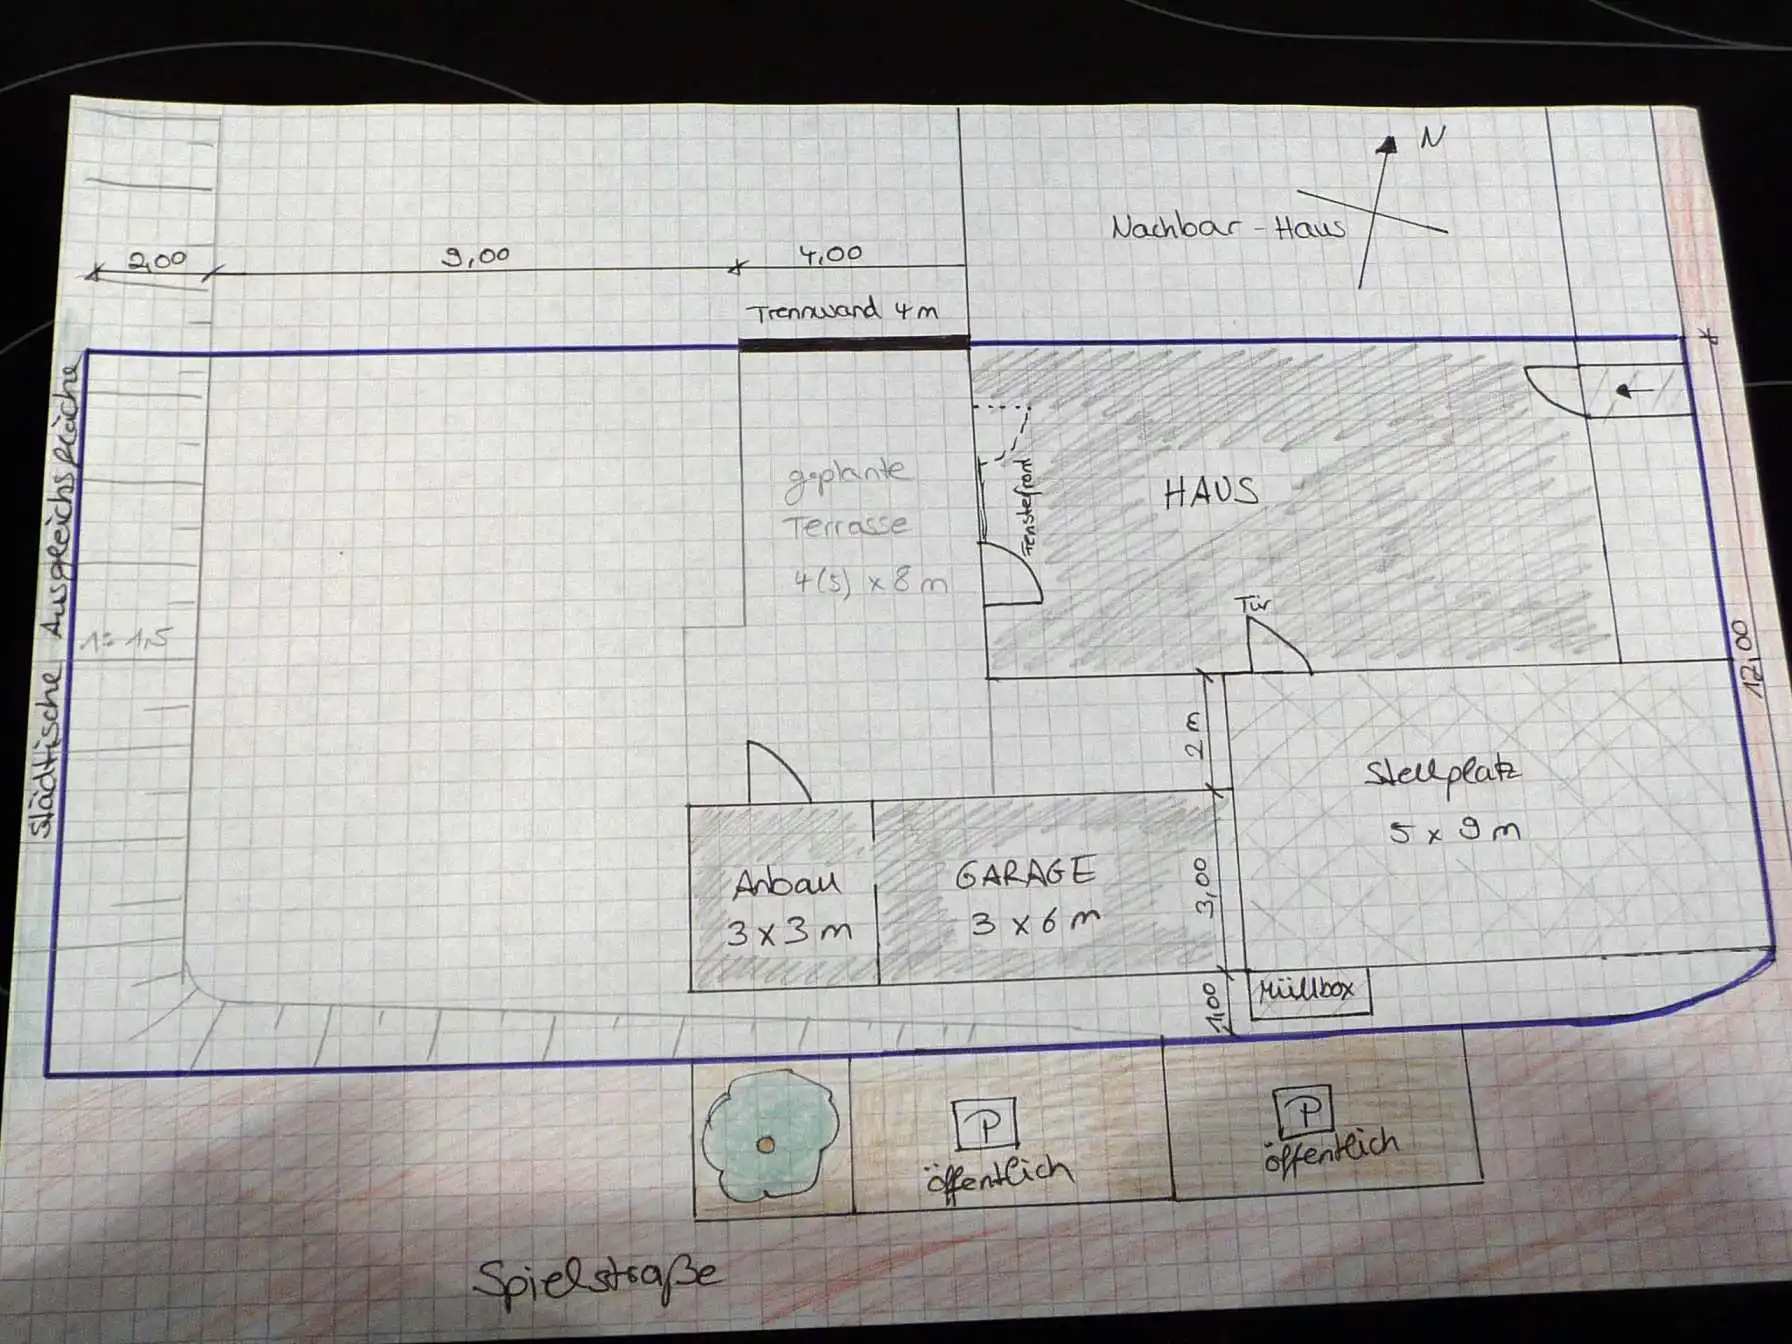 N
Nachbar-Haus
2,00
9,00
4,00
Trennwand 4 m
städtische Ausgleichsfläche
geplante
Terrasse
4(5) x 8 m
Fensterfront
HAUS
Tür
1:1,5
12,00
2 m
Stellplatz
5 x 9 m
Anbau
3 x 3 m
GARAGE
3 x 6 m
3,00
1,00
Müllbox
P
öffentlich
P
öffentlich
Spielstraße